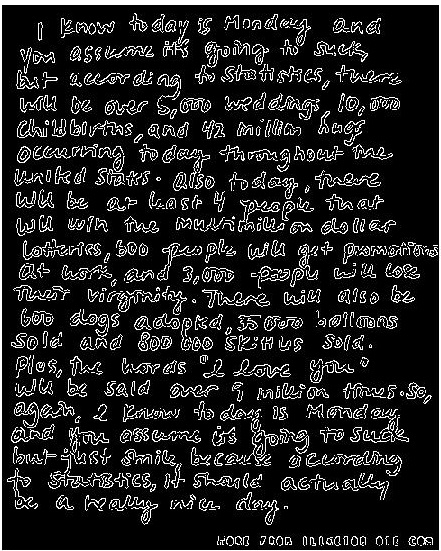 I know today is Monday and
you assume it's going to suck,
but according to statistics, there
will be over 5,000 weddings, 10,000
childbirths, and 42 million hugs
occurring today throughout the
United States. Also today, there
will be at least 4 people that
will win the multimillion dollar
lotteries, 600 people will get promotions
at work, and 3,000 people will lose
their virginity. There will also be
600 dogs adopted, 35000 balloons
sold and 800 000 skittles sold.
Plus, the words "I love you"
will be said over 9 million times. So,
again, I know today is Monday
and you assume it's going to suck
but just smile, because according
to statistics, it should actually
be a really nice day.
MORE FROM
.COM